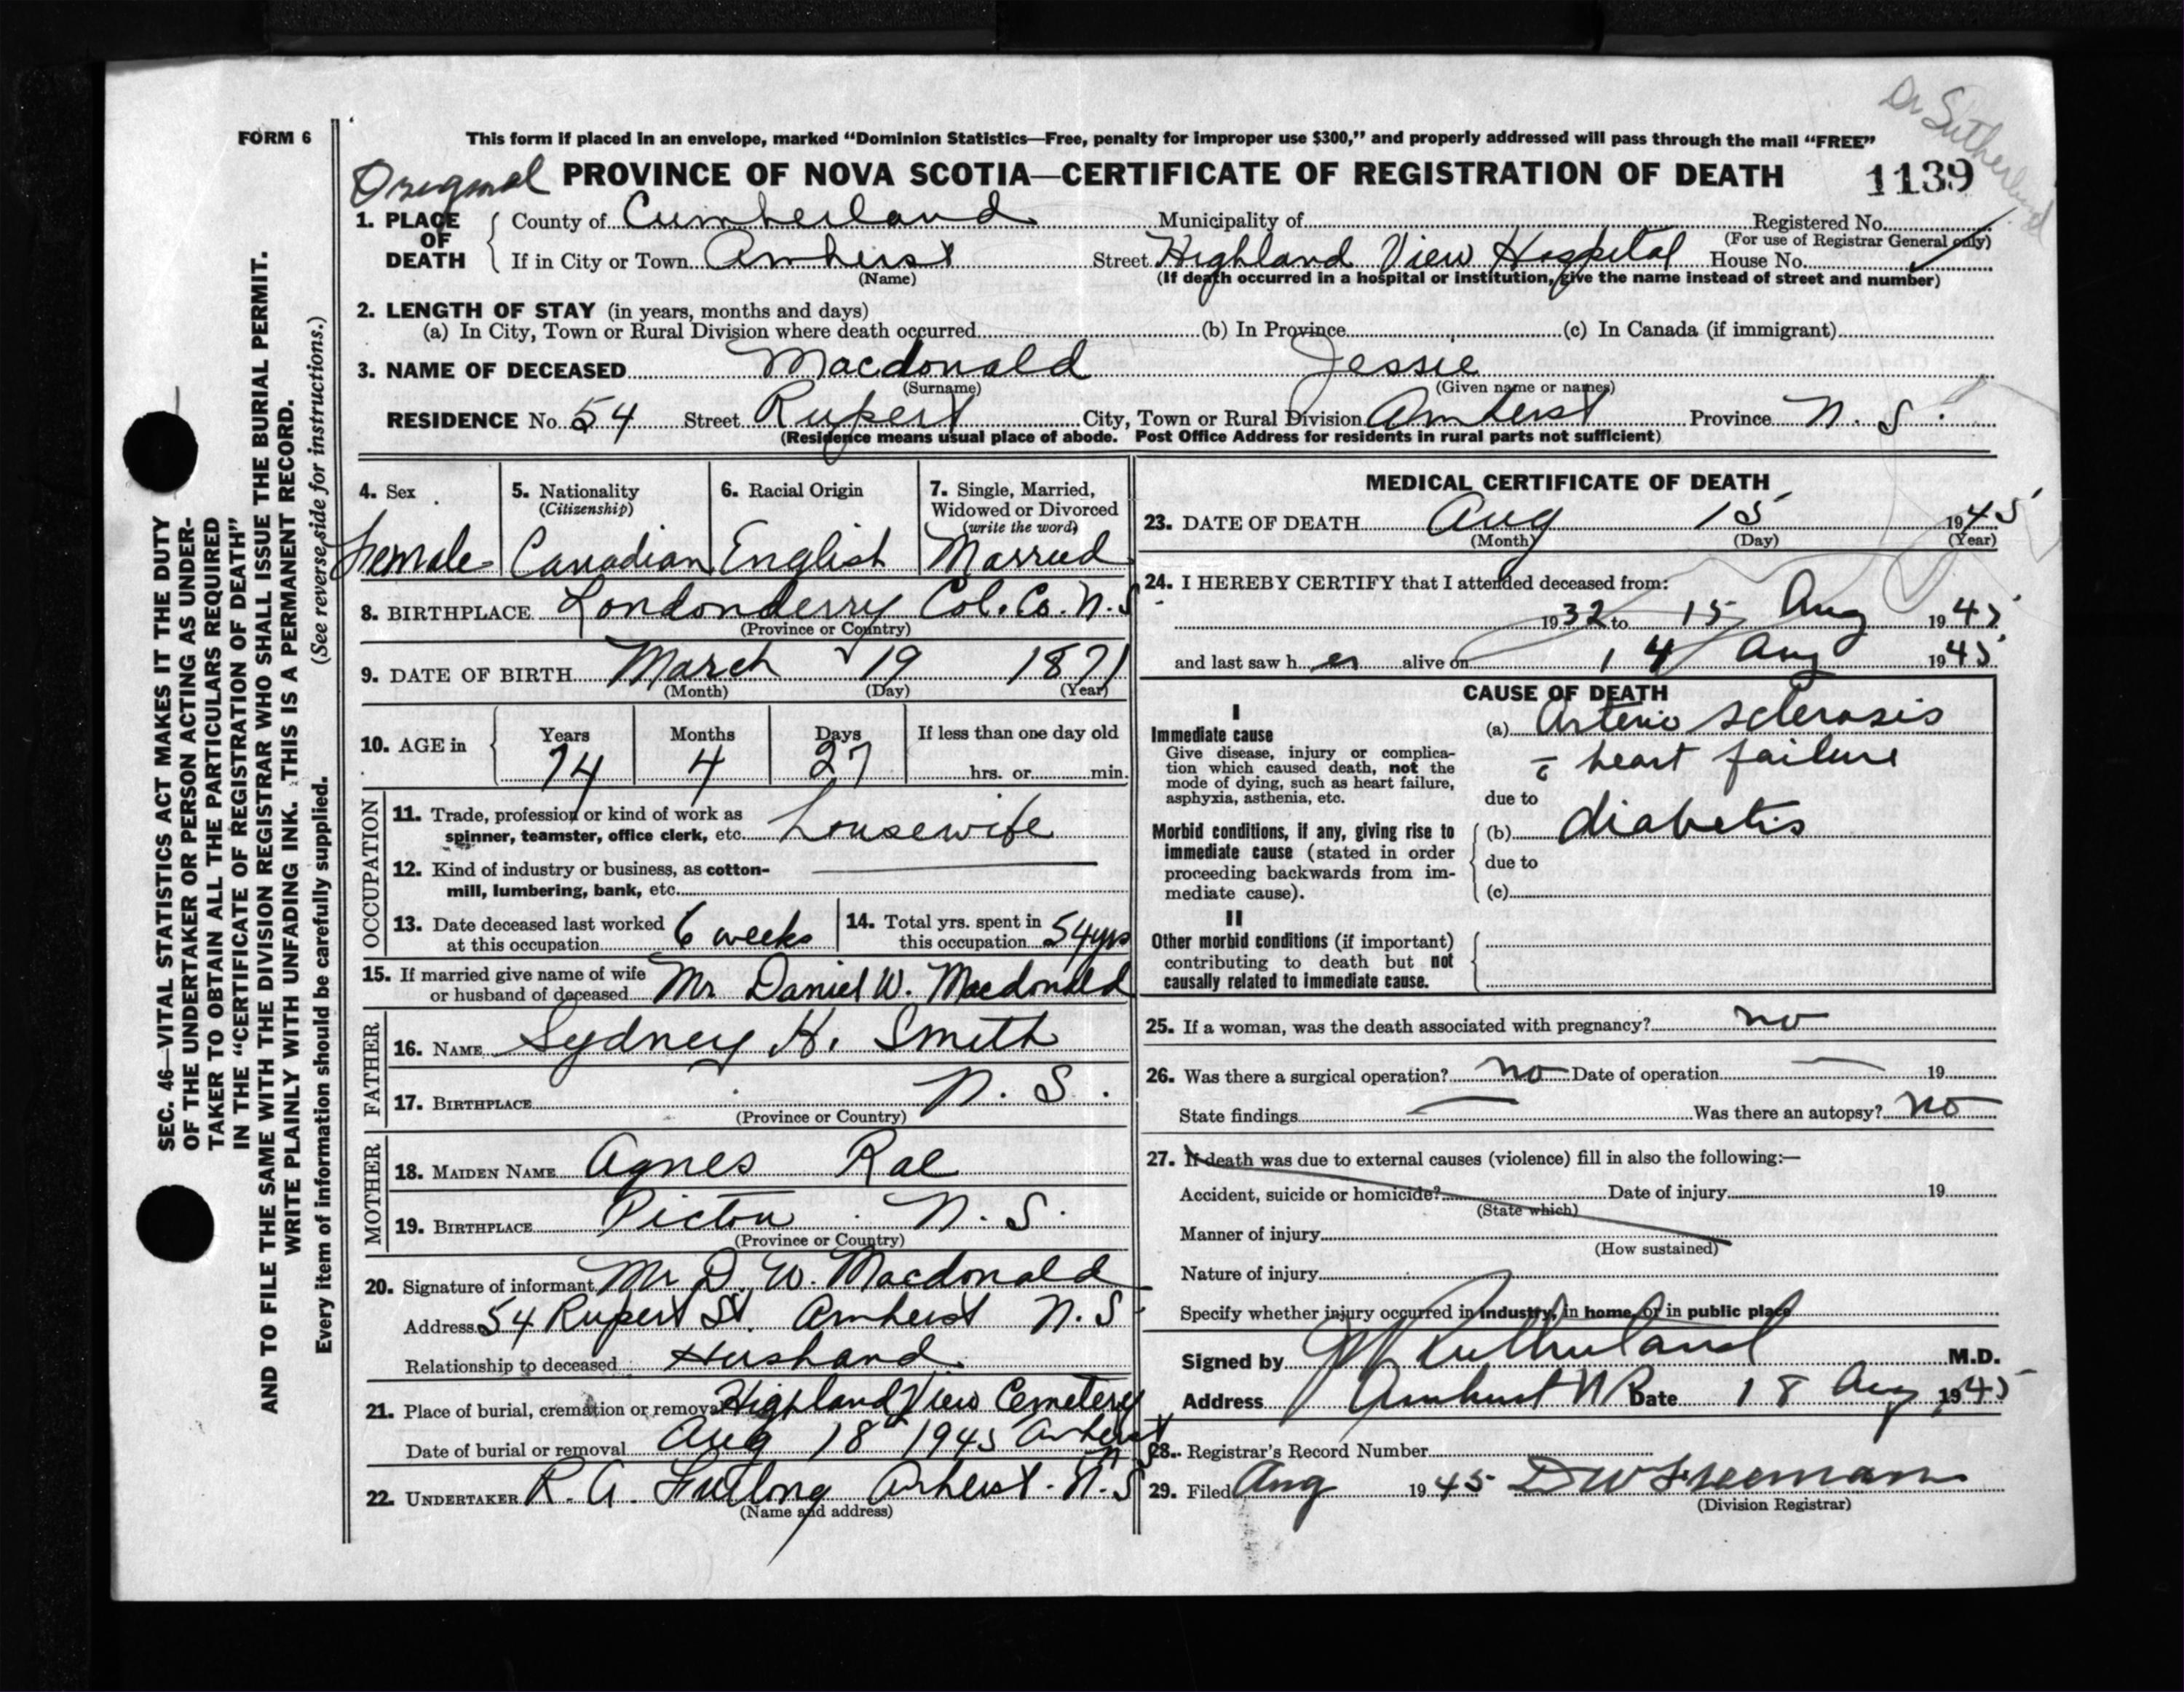 Dr Sutherland
FORM 6
This form if placed in an envelope, marked “Dominion Statistics—Free, penalty for improper use $300,” and properly addressed will pass through the mail “FREE”
Original PROVINCE OF NOVA SCOTIA—CERTIFICATE OF REGISTRATION OF DEATH 1139
1. PLACE OF DEATH County of Cumberland Municipality of Registered No.
(For use of Registrar General only)
If in City or Town Amherst Street Highland View Hospital House No.
(Name) (If death occurred in a hospital or institution, give the name instead of street and number)
2. LENGTH OF STAY (in years, months and days)
(a) In City, Town or Rural Division where death occurred (b) In Province (c) In Canada (if immigrant)
3. NAME OF DECEASED Macdonald Jessie
(Surname) (Given name or names)
RESIDENCE No. 54 Street Rupert City, Town or Rural Division Amherst Province N. S.
(Residence means usual place of abode. Post Office Address for residents in rural parts not sufficient)
4. Sex
Female
5. Nationality
(Citizenship)
Canadian
6. Racial Origin
English
7. Single, Married,
Widowed or Divorced
(write the word)
Married
8. BIRTHPLACE Londonderry Col. Co. N.S
(Province or Country)
9. DATE OF BIRTH March 19 1871
(Month) (Day) (Year)
10. AGE in Years Months Days If less than one day old
74 4 27 hrs. or min.
OCCUPATION
11. Trade, profession or kind of work as
spinner, teamster, office clerk, etc. housewife
12. Kind of industry or business, as cotton-
mill, lumbering, bank, etc.
13. Date deceased last worked
at this occupation 6 weeks
14. Total yrs. spent in
this occupation 54 yrs
15. If married give name of wife
or husband of deceased Mr Daniel W. Macdonald
FATHER
16. NAME Sydney H. Smith
17. BIRTHPLACE N. S.
(Province or Country)
MOTHER
18. MAIDEN NAME Agnes Rae
19. BIRTHPLACE Pictou N. S.
(Province or Country)
20. Signature of informant Mr D. W. Macdonald
Address 54 Rupert St. Amherst N.S
Relationship to deceased Husband
21. Place of burial, cremation or removal Highland View Cemetery
Date of burial or removal Aug 18 1945 Amherst
N S
22. UNDERTAKER R. A. Furlong Amherst. N.S
(Name and address)
MEDICAL CERTIFICATE OF DEATH
23. DATE OF DEATH Aug 15 1945
(Month) (Day) (Year)
24. I HEREBY CERTIFY that I attended deceased from:
1932 to 15 Aug 1945
and last saw her alive on 14 Aug 1945
CAUSE OF DEATH
I
Immediate cause
Give disease, injury or complica-
tion which caused death, not the
mode of dying, such as heart failure,
asphyxia, asthenia, etc.
(a) Arterio sclerosis
c̄ heart failure
due to
Morbid conditions, if any, giving rise to
immediate cause (stated in order
proceeding backwards from im-
mediate cause).
(b) diabetis
due to
(c)
II
Other morbid conditions (if important)
contributing to death but not
causally related to immediate cause.
25. If a woman, was the death associated with pregnancy? no
26. Was there a surgical operation? no Date of operation 19
State findings Was there an autopsy? no
27. If death was due to external causes (violence) fill in also the following:—
Accident, suicide or homicide? Date of injury 19
(State which)
Manner of injury
(How sustained)
Nature of injury
Specify whether injury occurred in industry, in home, or in public place
Signed by Sutherland M.D.
Address Amherst NS Date 18 Aug 1945
28. Registrar's Record Number
29. Filed Aug 1945 DW Freeman
(Division Registrar)
SEC. 46—VITAL STATISTICS ACT MAKES IT THE DUTY
OF THE UNDERTAKER OR PERSON ACTING AS UNDER-
TAKER TO OBTAIN ALL THE PARTICULARS REQUIRED
IN THE “CERTIFICATE OF REGISTRATION OF DEATH”
AND TO FILE THE SAME WITH THE DIVISION REGISTRAR WHO SHALL ISSUE THE BURIAL PERMIT.
WRITE PLAINLY WITH UNFADING INK. THIS IS A PERMANENT RECORD.
Every item of information should be carefully supplied. (See reverse side for instructions.)